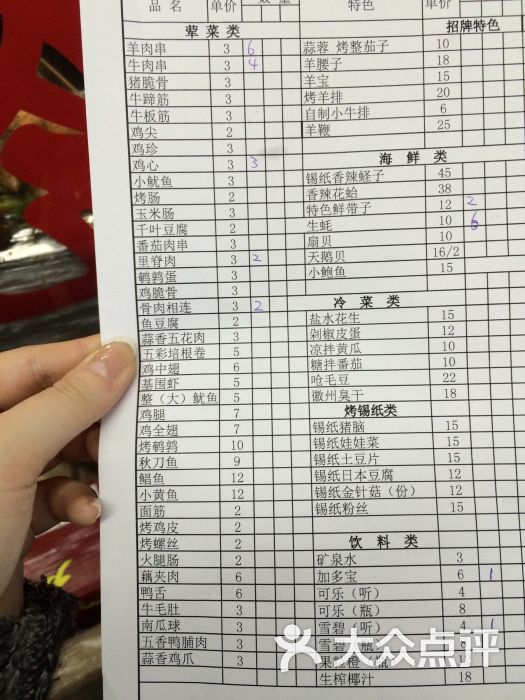 品名 单价 数量 特色 单价
荤菜类 招牌特色
羊肉串 3 6 蒜蓉 烤整茄子 10
牛肉串 3 4 羊腰子 18
猪脆骨 3 羊宝 15
牛蹄筋 3 烤羊排 20
牛板筋 3 自制小牛排 6
鸡尖 2 羊鞭 25
鸡珍 3
鸡心 3 3 海鲜类
小鱿鱼 3 锡纸香辣蛏子 45
烤肠 2 香辣花蛤 38
玉米肠 2 特色鲜带子 12 2
千叶豆腐 2 生蚝 10 6
番茄肉串 3 扇贝 10
里脊肉 3 2 天鹅贝 16/2
鹌鹑蛋 3 小鲍鱼 15
鸡脆骨 3
骨肉相连 3 2 冷菜类
鱼豆腐 2 盐水花生 15
蒜香五花肉 3 剁椒皮蛋 12
五彩培根卷 5 凉拌黄瓜 10
鸡中翅 6 糖拌番茄 10
基围虾 5 呛毛豆 22
整（大）鱿鱼 5 徽州臭干 18
鸡腿 7 烤锡纸类
鸡全翅 7 锡纸猪脑 15
烤鹌鹑 10 锡纸娃娃菜 15
秋刀鱼 9 锡纸土豆片 15
鲳鱼 12 锡纸日本豆腐 12
小黄鱼 12 锡纸金针菇（份） 12
面筋 2 锡纸粉丝 15
烤鸡皮 2
烤螺丝 2 饮料类
火腿肠 2 矿泉水 3
藕夹肉 6 加多宝 6 1
鸭舌 6 可乐（听） 4
牛毛肚 3 可乐（瓶） 8
南瓜球 3 雪碧（听） 4 1
五香鸭脯肉 3 雪碧（瓶）
蒜香鸡爪 3 果粒橙（瓶）
生榨椰汁 18
大众点评